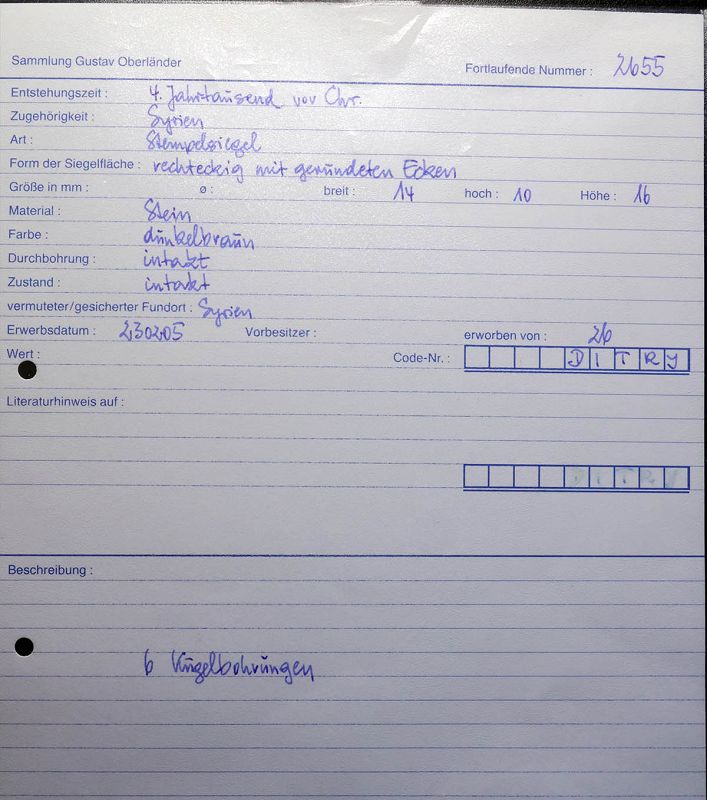 Sammlung Gustav Oberländer
Fortlaufende Nummer : 2655
Entstehungszeit : 4. Jahrtausend vor Chr.
Zugehörigkeit : Syrien
Art : Stempelsiegel
Form der Siegelfläche : rechteckig mit gerundeten Ecken
Größe in mm : ø : breit : 14 hoch : 10 Höhe : 16
Material : Stein
Farbe : dunkelbraun
Durchbohrung : intakt
Zustand : intakt
vermuteter/gesicherter Fundort : Syrien
Erwerbsdatum : 230205 Vorbesitzer : erworben von : 26
Wert : Code-Nr. : D I T R J
Literaturhinweis auf :
Beschreibung :
6 Kugelbohrungen